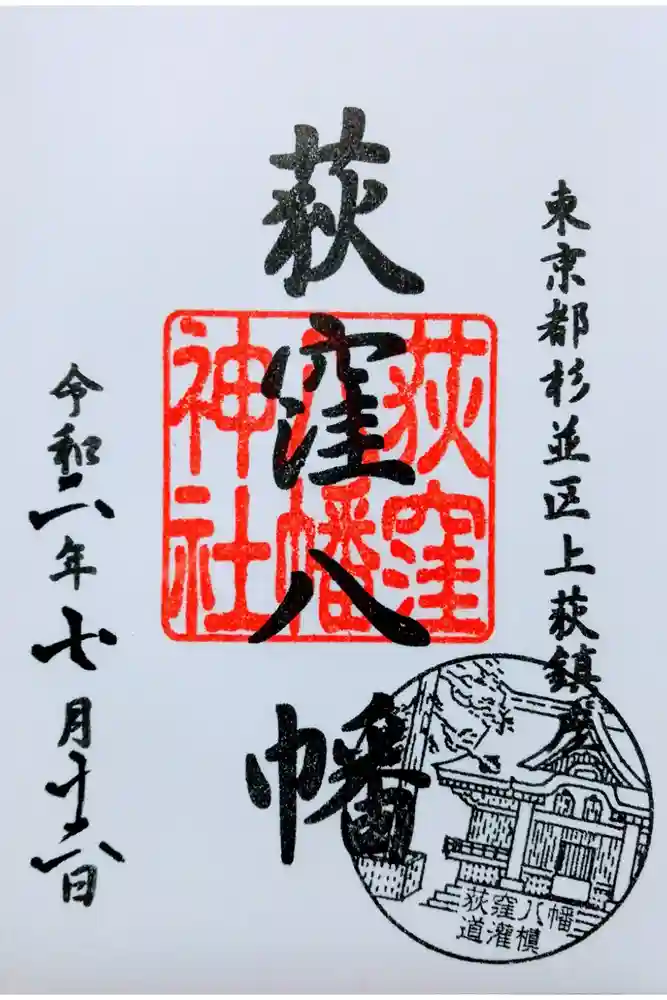 東京都杉並区上荻鎮座
荻窪八幡
荻窪
八幡
神社
令和二年七月十六日
荻窪八幡
道灌槙